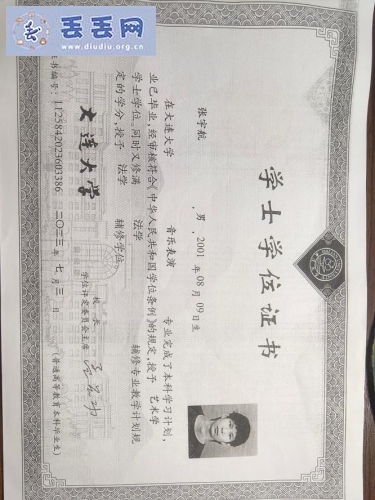 丢丢
www.diudiu.org.cn
学士学位证书
张宇航 ,男, 2001 年 08 月 09 日生
在大连大学 音乐表演 专业完成了本科学习计划,
业已毕业,经审核符合《中华人民共和国学位条例》的规定,授予 艺术学
学士学位。同时又修满 法学 辅修专业教学计划规
定的学分,授予 法学 辅修学位。
大连大学
校 长
学位评定委员会主席
证书编号:1125842023603386 二〇二三年 七 月 三 日 (普通高等教育本科毕业生)